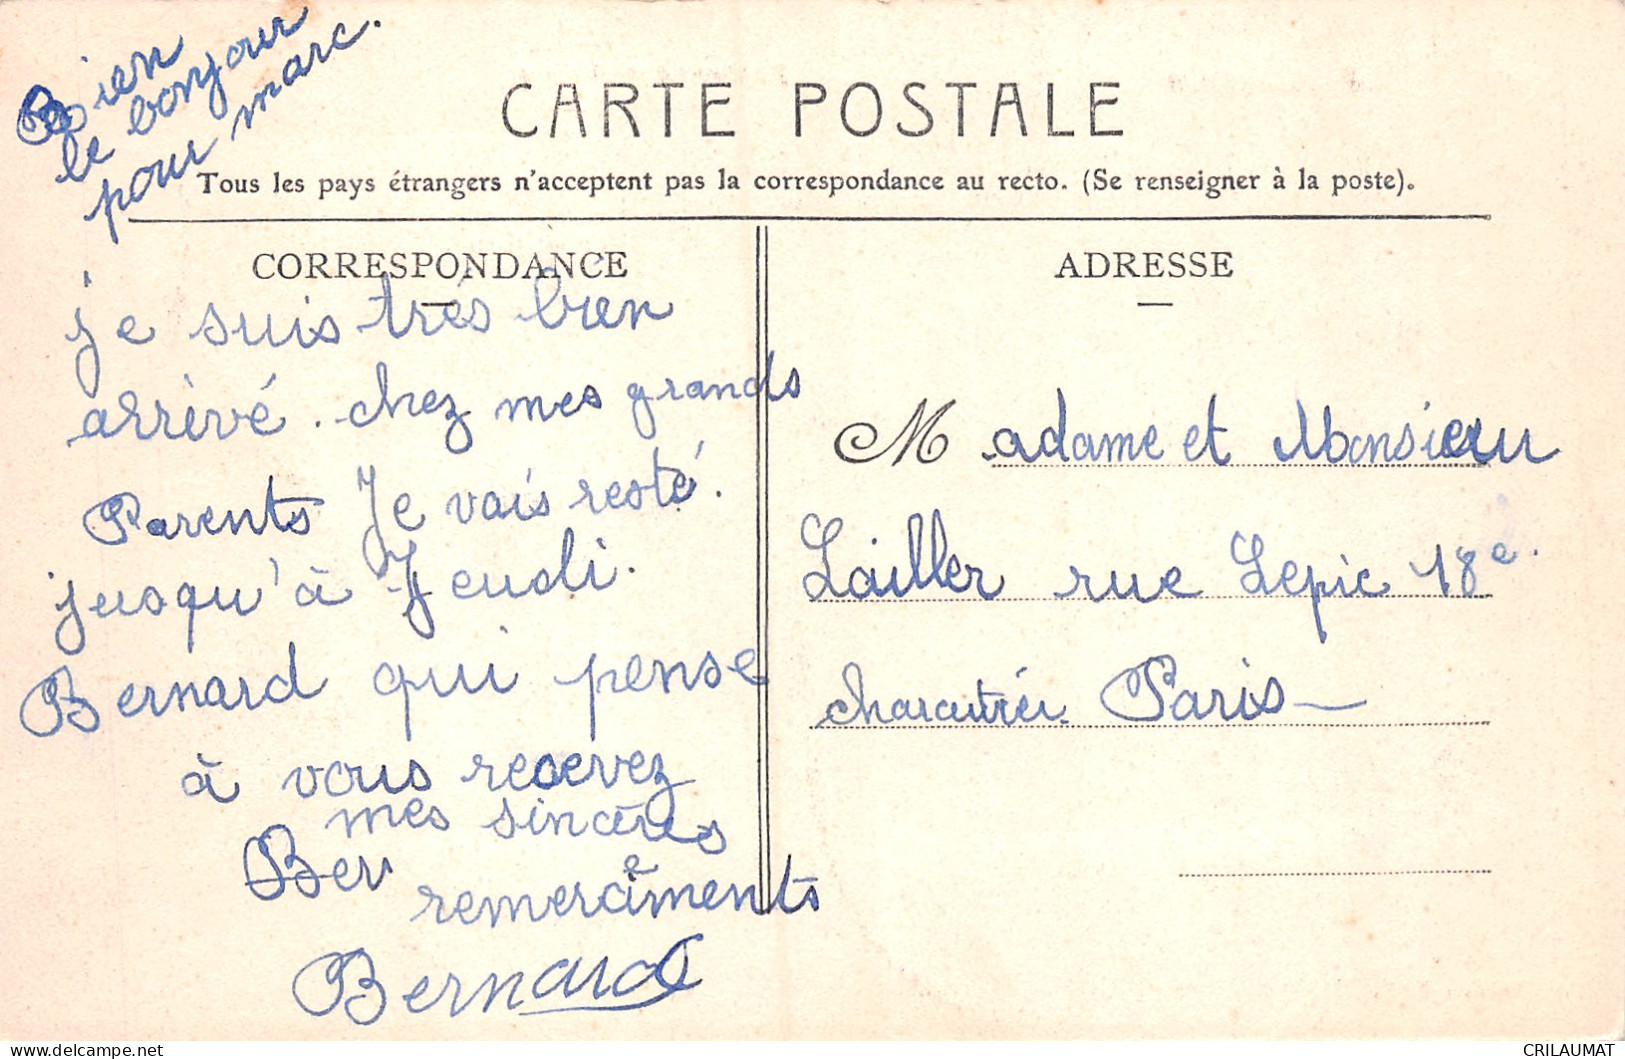 Bien
le bonjour
pour marc.
CARTE POSTALE
Tous les pays étrangers n'acceptent pas la correspondance au recto. (Se renseigner à la poste).
CORRESPONDANCE
je suis très bien
arrivé. chez mes grands
Parents Je vais resté.
jusqu'à Jeudi.
Bernard qui pense
à vous recevez
mes sincères
Ber
remerciements
Bernard
ADRESSE
Madame et Monsieur
Lailler rue Lepic 18e.
charcutier. Paris
delcampe.net
CRILAUMAT